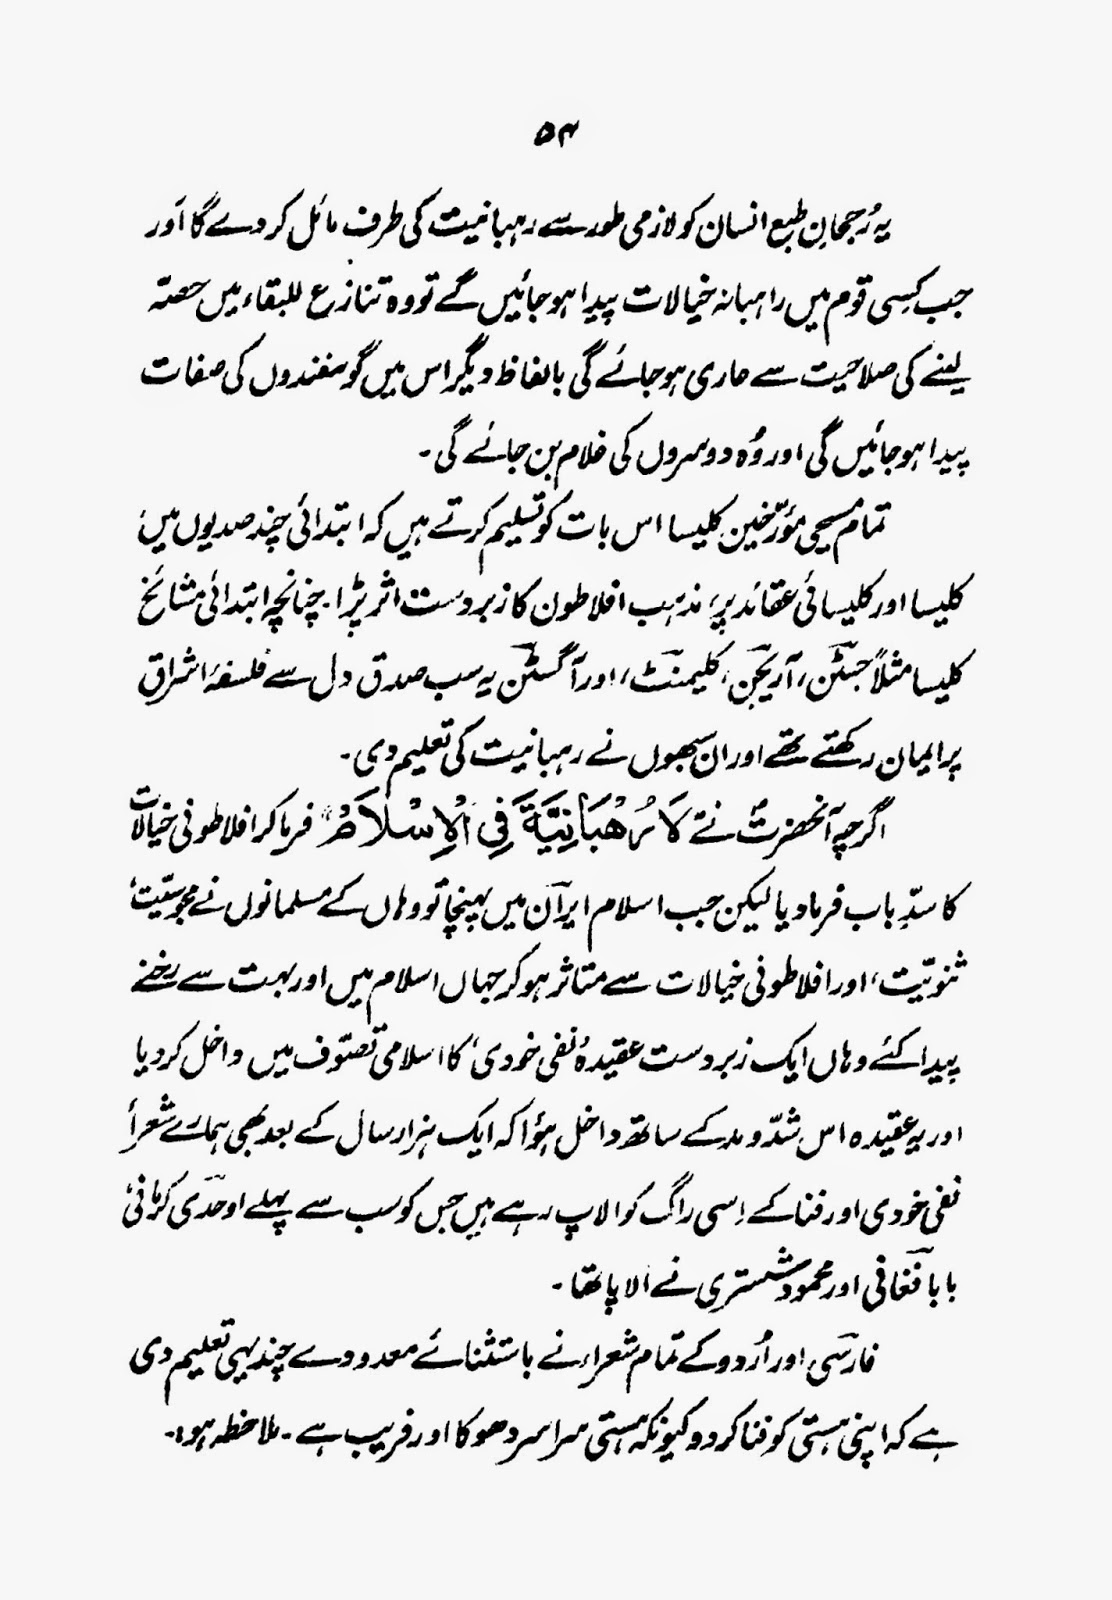 ۵۴
یہ رُجحانِ طبع انسان کو لازمی طور سے رہبانیت کی طرف مائل کر دے گا اور
جب کسِی قوم میں راہبانہ خیالات پیدا ہو جائیں گے تو وہ تنازع للبقاء میں حصّہ
لینے کی صلاحیت سے عاری ہو جائے گی بالفاظ دیگر اس میں گوسفندوں کی صفات
پیدا ہو جائیں گی اور وُہ دوسروں کی غلام بن جائے گی۔
تمام مسیحی مؤرّخین کلیسا اس بات کو تسلیم کرتے ہیں کہ ابتدائی چند صدیوں میں،
کلیسا اور کلیسائی عقائد پر، مذہب افلاطون کا زبردست اثر پڑا۔ چنانچہ ابتدائی مشائخ
کلیسا مثلاً جسٹن، آریجن، کلیمنٹ، اور آگسٹن یہ سب صدق دل سے فلسفۂ اشراق
پر ایمان رکھتے تھے اور ان سبھوں نے رہبانیت کی تعلیم دی۔
اگرچہ آنحضرتؐ نے لَا رُهْبَانِيَّةَ فِي الْاِسْلَامْ فرما کر افلاطونی خیالات
کا سدِّ باب فرما دیا لیکن جب اسلام ایران میں پہنچا تو وہاں کے مسلمانوں نے مجوسیّت،
ثنویّت، اور افلاطونی خیالات سے متاثر ہو کر جہاں اسلام میں اور بہت سے رخنے
پیدا کئے وہاں ایک زبردست عقیدہ ’نفی خودی‘ کا اسلامی تصوّف میں داخل کر دیا
اور یہ عقیدہ اس شدّ و مد کے ساتھ داخل ہؤا کہ ایک ہزار سال کے بعد بھی ہمارے شعرأ
نفی خودی اور فنا کے اِسی راگ کو الاپ رہے ہیں جس کو سب سے پہلے اوحدی کرمانی،
بابا فغانی اور محمود شبستری نے الاپا تھا۔
فارسی اور اُردو کے تمام شعراء نے باستثنائے معدودے چند یہی تعلیم دی
ہے کہ اپنی ہستی کو فنا کر دو کیونکہ ہستی سراسر دھوکا اور فریب ہے۔ ملاحظہ ہو:۔